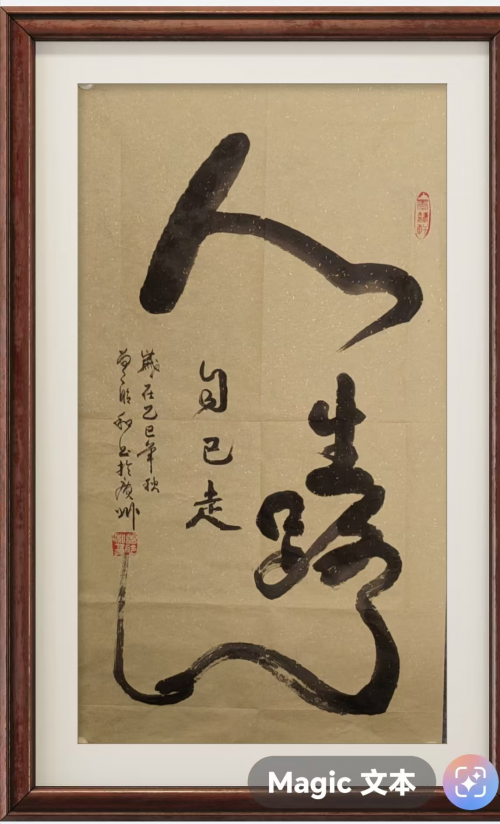 人生路
自己走
歲在乙巳年秋
書於廣州
Magic 文本